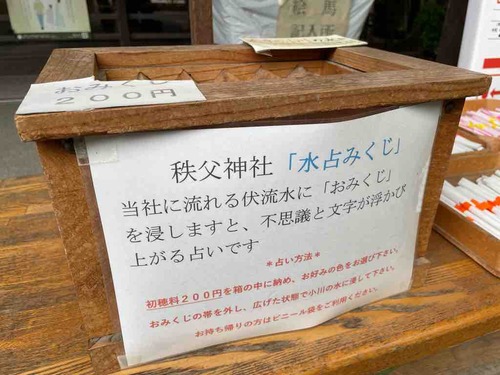 おみくじ
２００円
秩父神社「水占みくじ」
当社に流れる伏流水に「おみくじ」
を浸しますと、不思議と文字が浮かび
上がる占いです
＊占い方法＊
初穂料２００円を箱の中に納め、お好みの色をお選び下さい。
おみくじの帯を外し、広げた状態で小川の水に浸して下さい。
お持ち帰りの方はビニール袋をご利用ください。